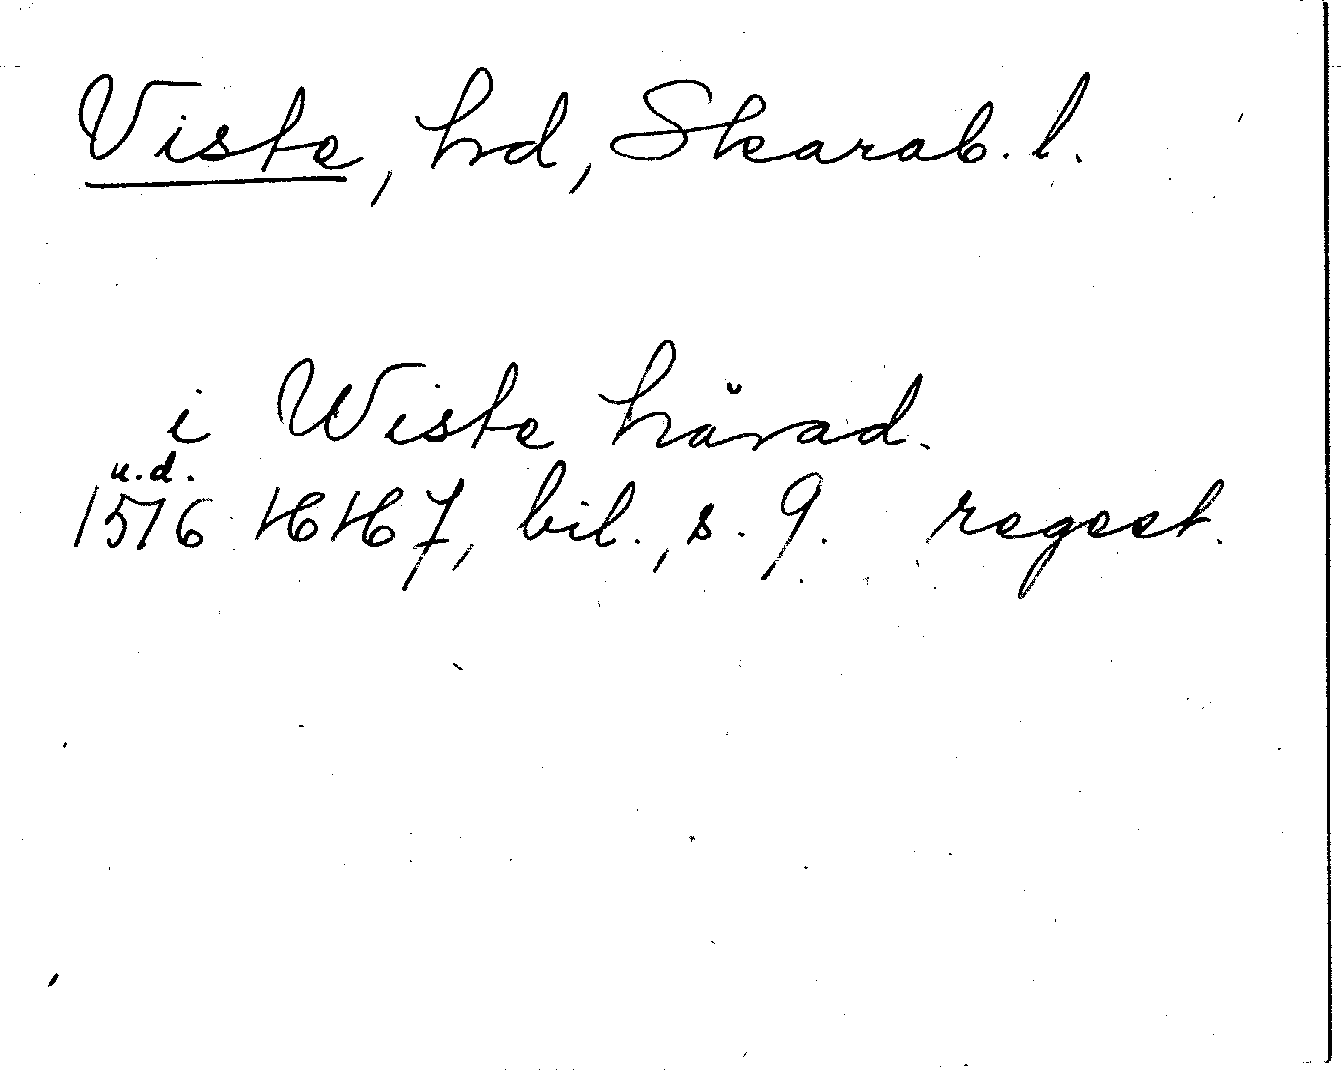 Viste, hd, Skarab. l.
i Wiste härad.
u.d.
1576 HH 7, bil., s. 9. regest.